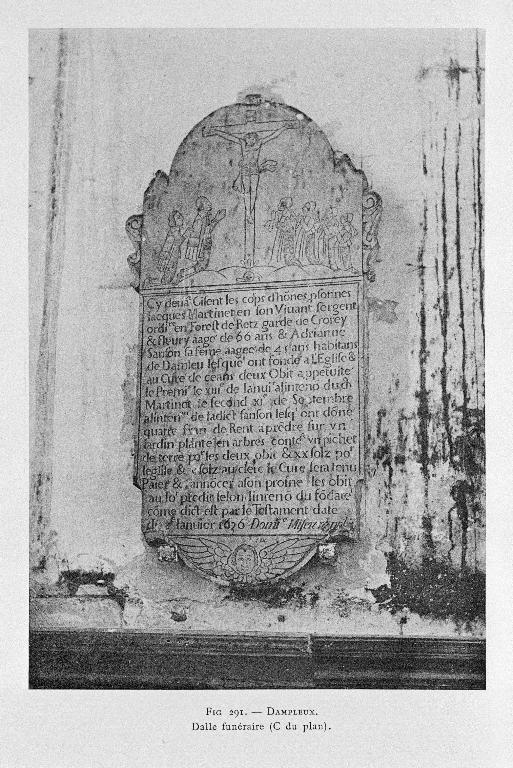 Cy deuāt Gisent les cops d'hōnes psonnes
Jacques Martinet en son Viuant sergent
ordiʳᵉ en Forest de Retz garde de Croyey
& fleury aagé de 66 ans & Adrianne
Sanson sa feme aagee de 4 ans habitans
de Damleu lesque ont fondé a L'Eglise &
au Cure de ceans deux Obit appetuite
le Premʳ le xiiiᵉ de Ianuī a lintenō dudᶜᵗ
Martinet le second xiᵉ de Septembre
a lintenᵒⁿ de ladict sanson lesqˡ ont dōné
quatre de Rent a prēdre sur vn
Iardin plante en arbres contēᵗ vn pichet
de terre poʳ les deux obit & xx solz poʳ
leglise & solz au clerc le Cure sera tenu
Paier & annōcer a son prosne les obit
au joʳ predit selon lintenō du fōdateʳ
cōme dict est par le Testament date
du Ianuier 1676
FIG 291. — DAMPLEUX.
Dalle funéraire (C du plan).